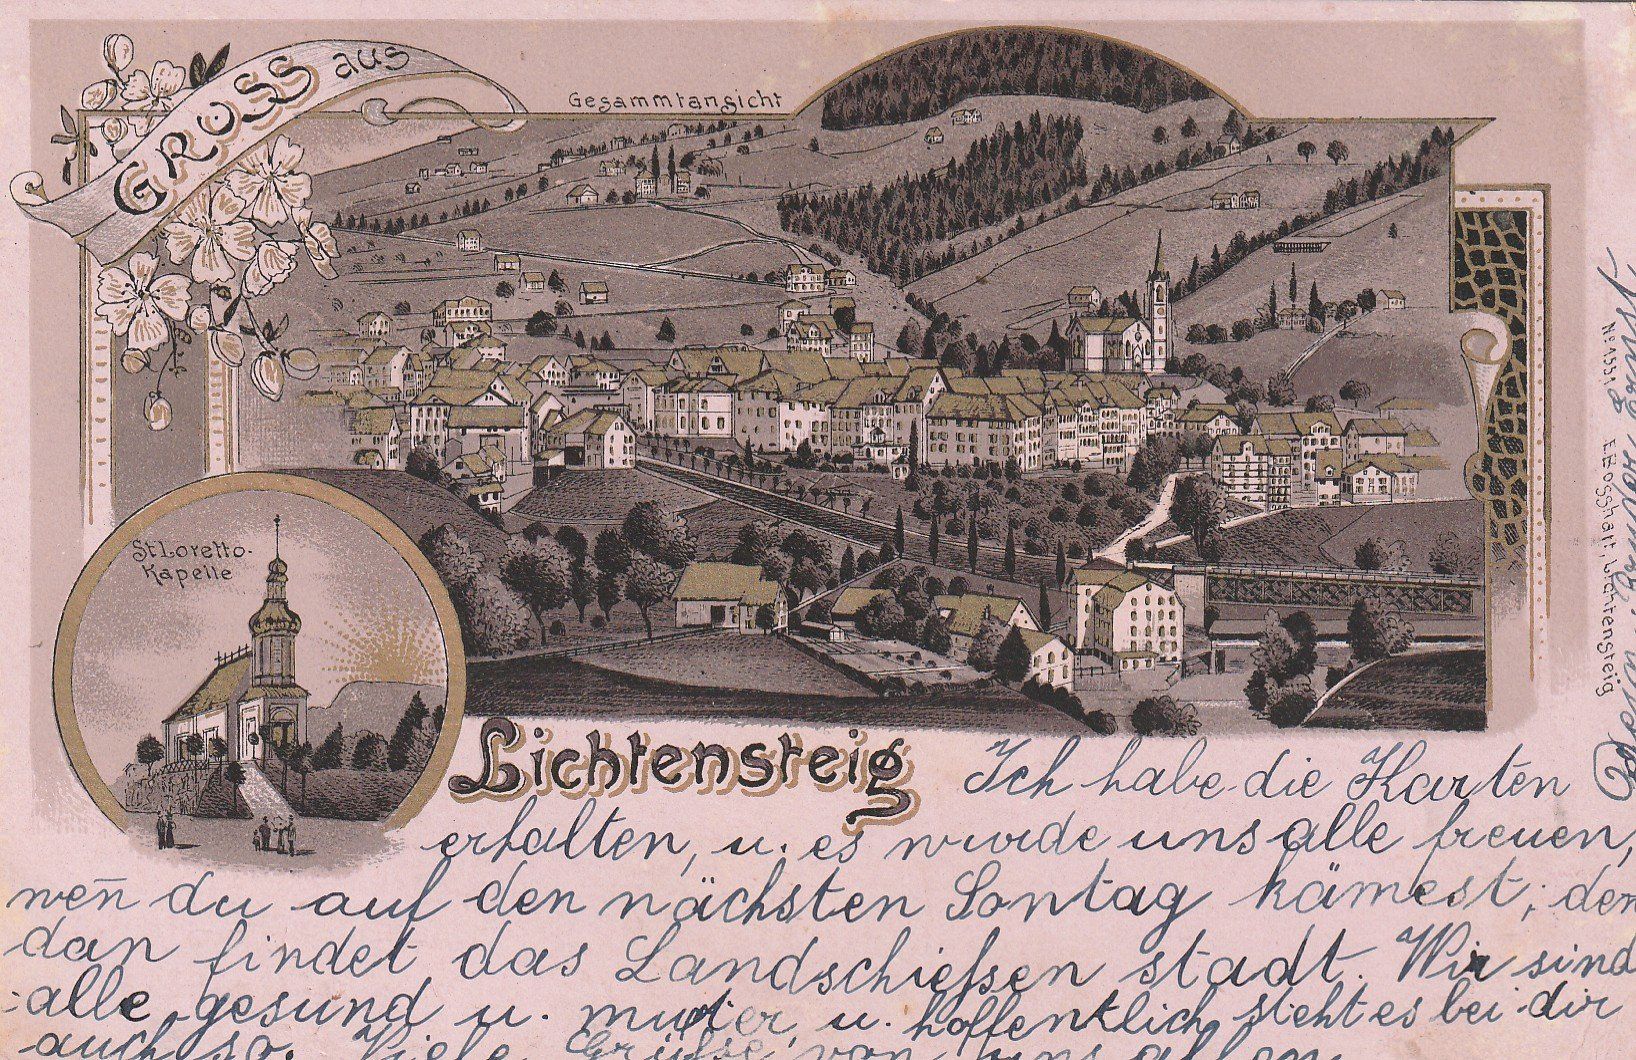 GRUSS aus
Gesammtansicht
St. Loretto-
Kapelle
Lichtensteig
Ich habe die Karten
erhalten, u. es wurde uns alle freuen,
wen̄ du auf den nächsten Sontag kämest, den
dan findet das Landschießen stadt. Wir sind
alle gesund u. munter, u. hoffentlich steht es bei dir
auch so. Viele Grüße von uns allen
No 1551g E. Rosshart Lichtensteig